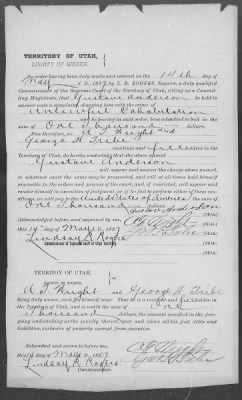 TERRITORY OF UTAH,
COUNTY OF WEBER.
An order having been duly made and entered on the 14th day of
May A.D. 1887, by L. R. ROGERS, Esquire, a duly qualified
Commissioner of the Supreme Court of the Territory of Utah, sitting as a Commit-
ting Magistrate, that Gustave Anderson be held to
answer unto a complaint charging him with the crime of
Unlawful Cohabitation
and he having, in and by said order, been admitted to bail in the
sum of One Thousand dollars.
Now therefore, we A T Wright and
George H Tribe
residents and free holders in the
Territory of Utah, do hereby undertake that the above named
Gustave Anderson
will appear and answer the charge above named,
in whatever court the same may be prosecuted, and will at all times hold himself
amenable to the orders and process of the court, and, if convicted, will appear and
render himself in execution of judgment, or, if he fail to perform either of these con-
ditions, we will pay to the United States of America the sum of
One Thousand dollars.
Acknowledged before, and approved by me,
this 14 day of May 1887
Lindsay R. Rogers
Commissioner of Supreme Court of Utah Territory.
TERRITORY OF UTAH,
COUNTY OF WEBER.
A T Wright and George H Tribe
being duly sworn, each for himself says: That he is a resident and free holder
in the Territory of Utah, and is worth the sum of One
Thousand dollars, the amount specified in the fore-
going undertaking as the penalty thereof, over and above all his just debts and
liabilities, exclusive of property exempt from execution.
Subscribed and sworn to before me,
this 14 day of May 1887
Lindsay R. Rogers
Commissioner